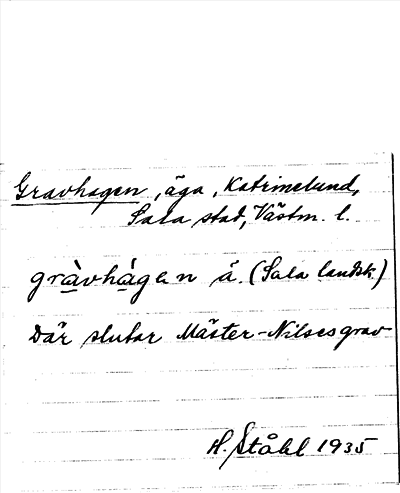 Gravhagen, äga, Katrinelund,
Sala stad, Västm. l.
gràvhágen å. (Sala landsk.)
Där slutar Mäster-Nilsesgrav
H. Ståhl 1935